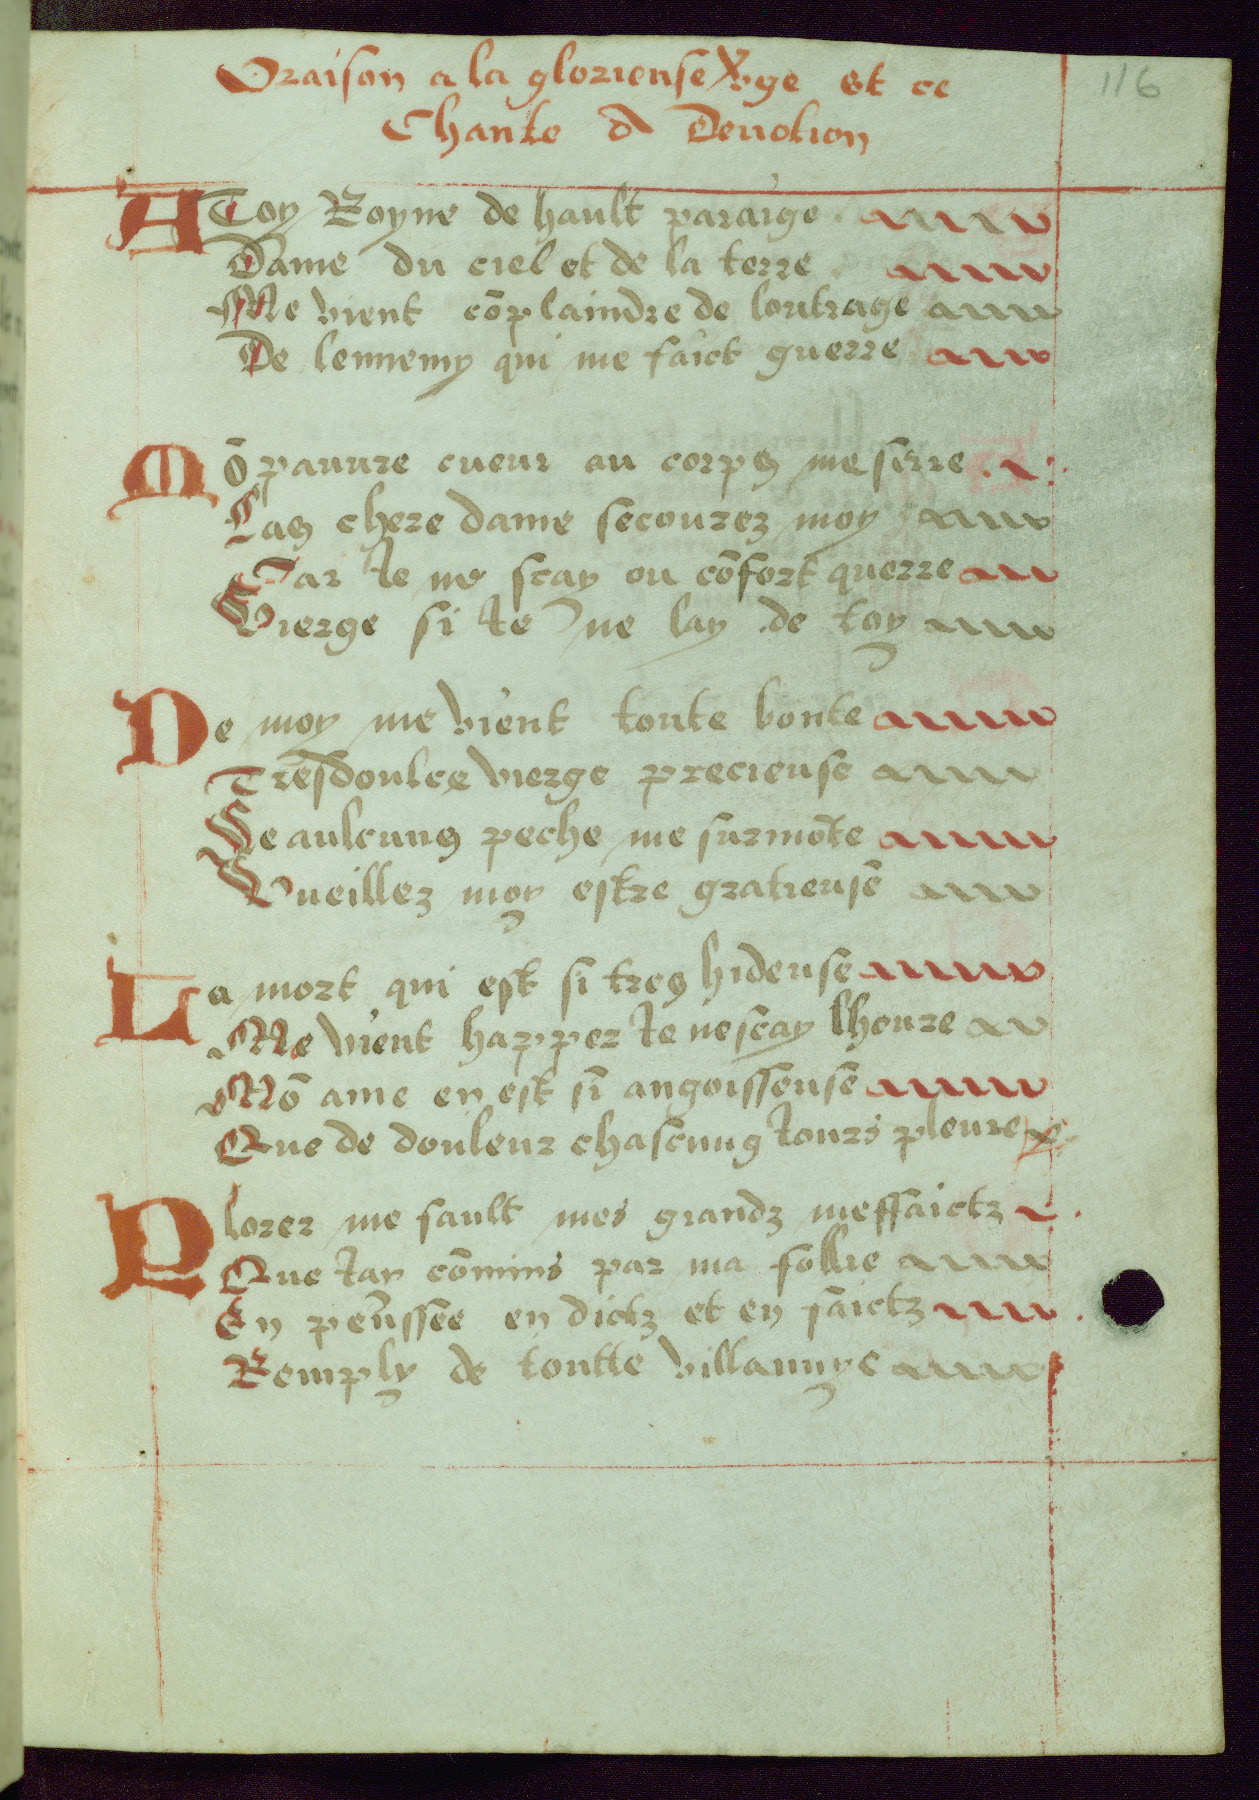 116
Oraison a la glorieuse Vꝰge et ce
Chante d Deuotion
A Toy Royne de hault paraige
Dame du ciel et de la terre
Me vient cōplaindre de loutrage
De lennemy qui me faict guerre
Mō pauure cueur au corps me serre
Las chere dame secourez moy
Car Ie ne scay ou cōfort querre
Vierge si Ie ne lay de toy
De moy me vient toute bonte
Tresdoulce vierge precieuse
Se aulcuns peche me surmōte
Vueillez moy estre gratieuse
La mort qui est si tres hideuse
Me vient happer Ie ne scay lheure
Mō ame en est si angoisseuse
Que de douleur chascung Iours pleure
Plorer me fault mes grandz meffaictz
Que Iay cōmins par ma follie
En penssee en dictz et en faictz
Remply de toutte villannye